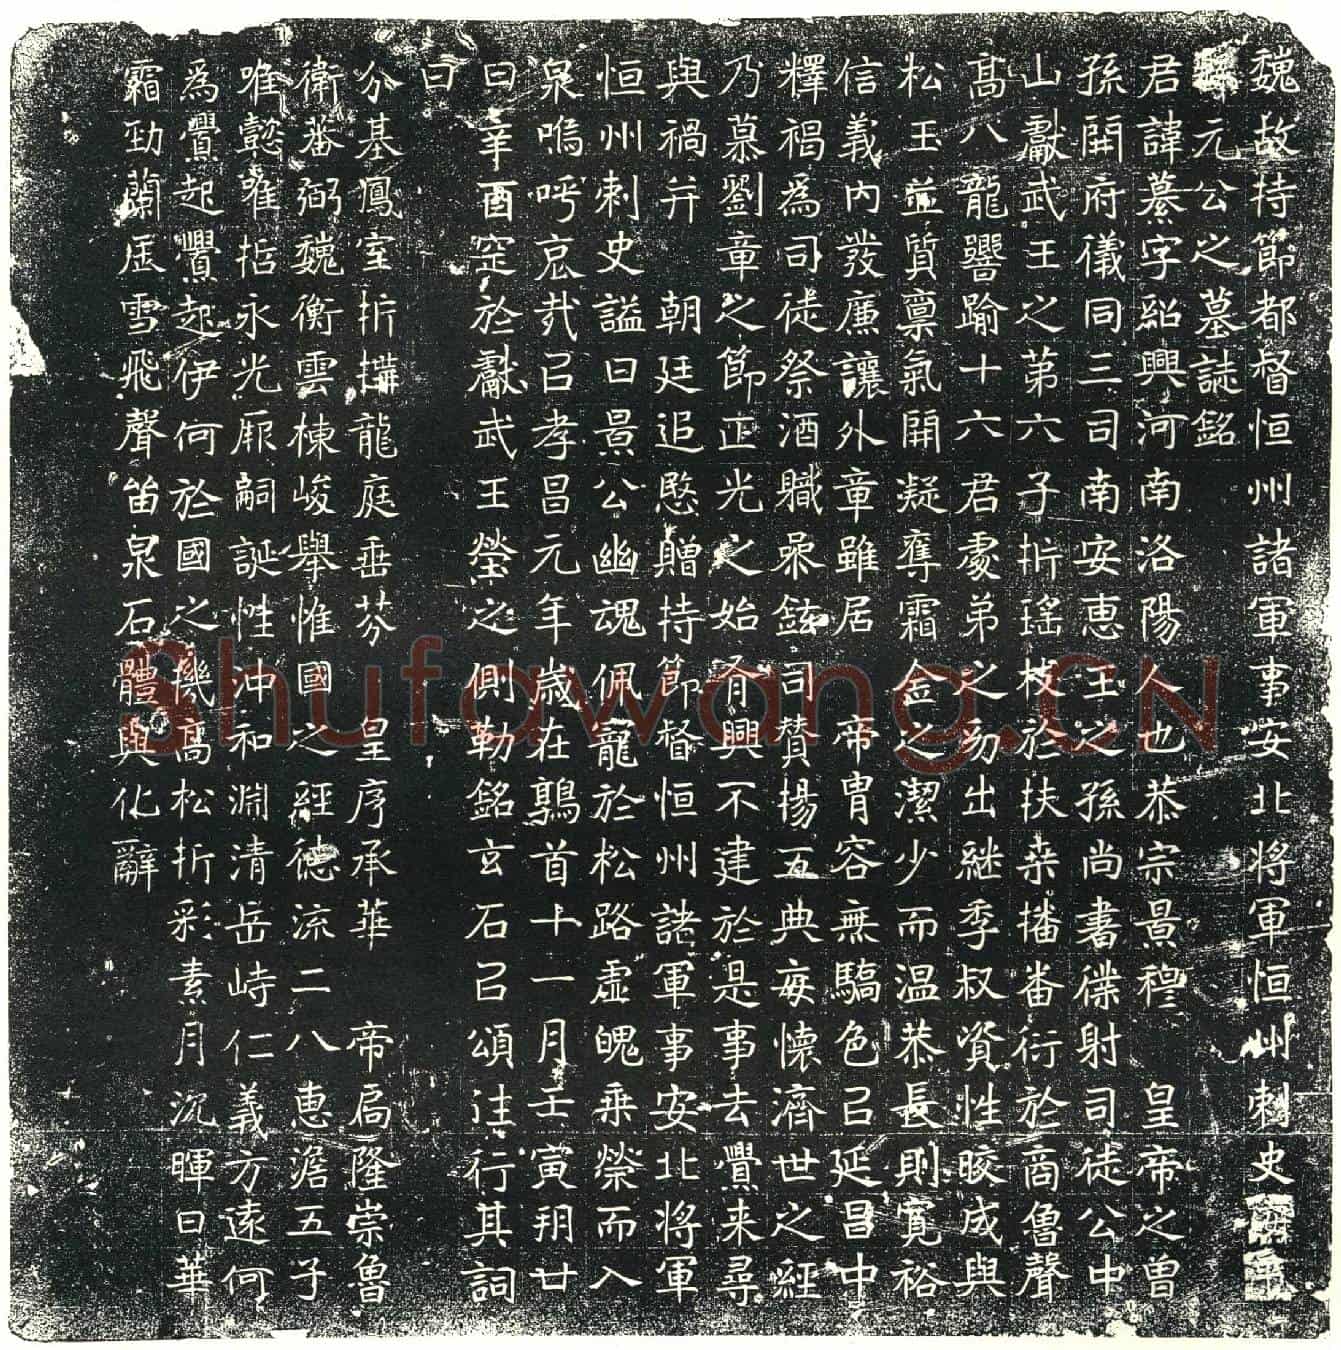 魏故持節都督恒州諸軍事安北將軍恒州刺史
元公之墓誌銘
君諱纂字紹興河南洛陽人也恭宗景穆 皇帝之曽
孫開府儀同三司南安惠王之孫尚書僕射司徒公中
山獻武王之第六子折瑤枝於扶桒播蕃衍於商魯聲
髙八龍響踰十六君處弟之㓜出継季叔資性皎成與
松玉並質禀氣開凝奪霜金之潔少而温恭長則寬裕
信義内發廉讓外章雖居 帝胄容無驕色㠯延昌中
釋褐爲司徒祭酒職叅鉉司賛揚五典每懷濟世之經
乃慕劉章之節正光之始有興不建於是事去舋来尋
與禍并 朝廷追愍贈持節督恒州諸軍事安北將軍
恒州刺史謚曰景公幽魂佩寵於松路虛魄乗榮而入
泉嗚呼哀㢤㠯孝昌元年歳在鶉首十一月壬寅朔廿
日辛酉窆於獻武王塋之側勒銘玄石㠯頌往行其詞
曰
分基鳳室折構龍庭垂芬 皇序承華 帝扃隆崇魯
衛蕃弼魏衡雲棟峻舉惟國之經德流二八惠澹五子
唯懿唯哲永光厥嗣誕性沖和淵清岳峙仁義方遠何
爲舋起舋起伊何於國之機髙松折彩素月沉暉日華
霜勁蘭居雪飛聲笛泉石體與化辭
Shufawang.CN